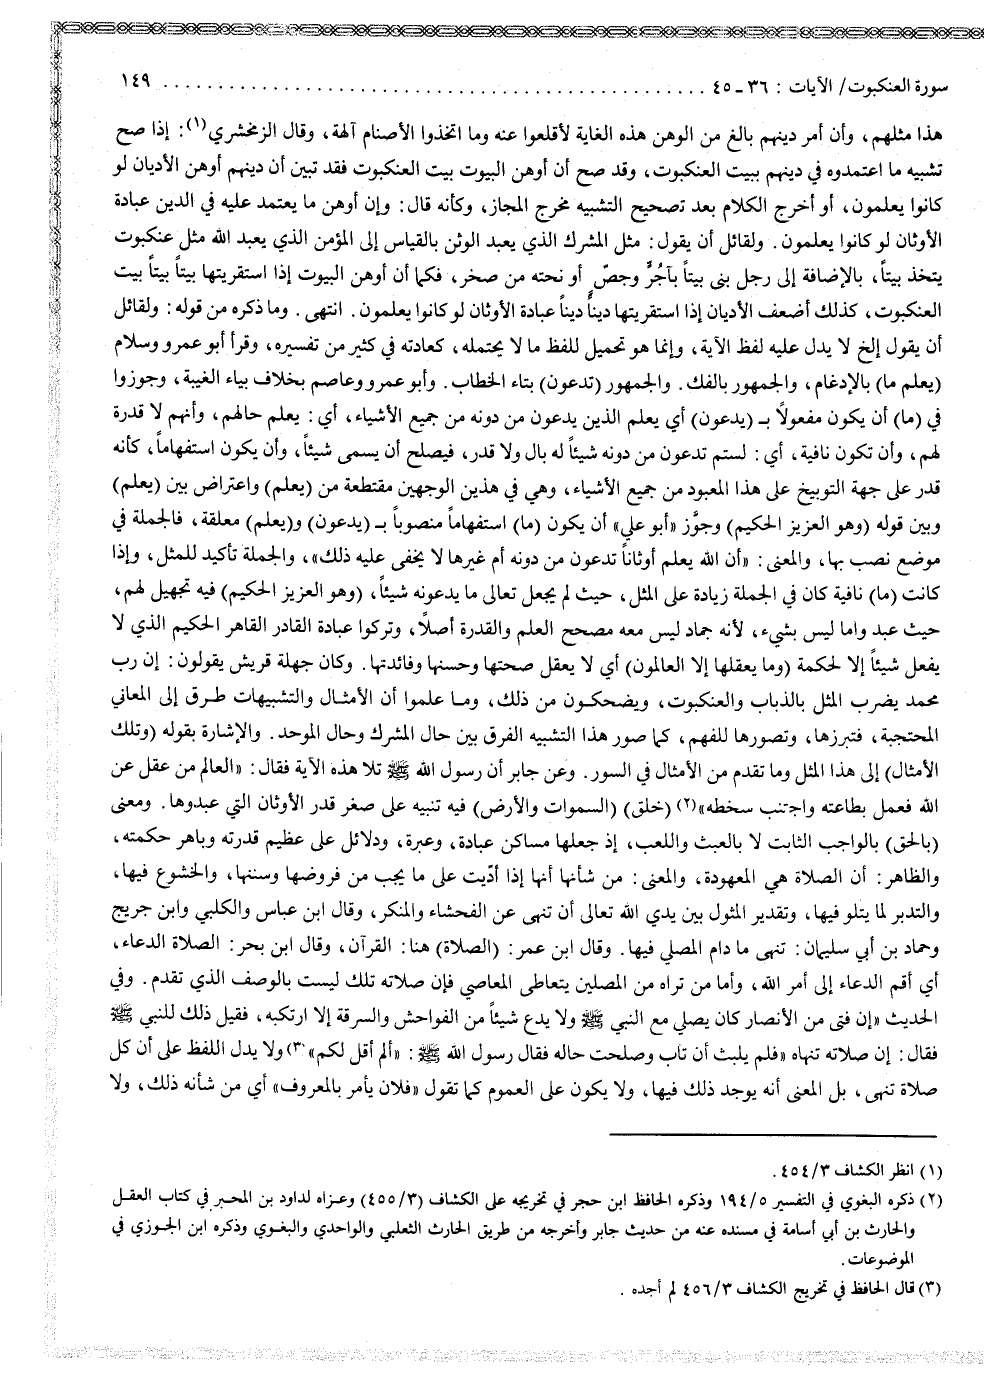 سورة العنكبوت/ الآيات : ٣٦ ـ ٤٥ ........................................ ١٤٩
هذا مثلهم، وأن أمر دينهم بالغ من الوهن هذه الغاية لأقلعوا عنه وما اتخذوا الأصنام آلهة، وقال الزمخشري(١): إذا صح
تشبيه ما اعتمدوه في دينهم ببيت العنكبوت، وقد صح أن أوهن البيوت بيت العنكبوت فقد تبين أن دينهم أوهن الأديان لو
كانوا يعلمون، أو أخرج الكلام بعد تصحيح التشبيه مخرج المجاز، وكأنه قال: وإن أوهن ما يعتمد عليه في الدين عبادة
الأوثان لو كانوا يعلمون. ولقائل أن يقول: مثل المشرك الذي يعبد الوثن بالقياس إلى المؤمن الذي يعبد الله مثل عنكبوت
يتخذ بيتاً، بالإضافة إلى رجل بنى بيتاً بآجُرٍّ وجصّ أو نحته من صخر، فكما أن أوهن البيوت إذا استقريتها بيتاً بيتاً بيت
العنكبوت، كذلك أضعف الأديان إذا استقريتها ديناً ديناً عبادة الأوثان لو كانوا يعلمون. انتهى. وما ذكره من قوله: ولقائل
أن يقول إلخ لا يدل عليه لفظ الآية، وإنما هو تحميل للفظ ما لا يحتمله، كعادته في كثير من تفسيره، وقرأ أبو عمرو وسلام
(يعلم ما) بالإدغام، والجمهور بالفك. والجمهور (تدعون) بتاء الخطاب. وأبو عمرو وعاصم بخلاف بياء الغيبة، وجوزوا
في (ما) أن يكون مفعولاً بـ (يدعون) أي يعلم الذين يدعون من دونه من جميع الأشياء، أي: يعلم حالهم، وأنهم لا قدرة
لهم، وأن تكون نافية، أي: لستم تدعون من دونه شيئاً له بال ولا قدر، فيصلح أن يسمى شيئاً، وأن يكون استفهاماً، كأنه
قدر على جهة التوبيخ على هذا المعبود من جميع الأشياء، وهي في هذين الوجهين مقتطعة من (يعلم) واعتراض بين (يعلم)
وبين قوله (وهو العزيز الحكيم) وجوَّز «أبو علي» أن يكون (ما) استفهاماً منصوباً بـ (يدعون) و(يعلم) معلقة، فالجملة في
موضع نصب بها، والمعنى: «أن الله يعلم أوثاناً تدعون من دونه أم غيرها لا يخفى عليه ذلك»، والجملة تأكيد للمثل، وإذا
كانت (ما) نافية كان في الجملة زيادة على المثل، حيث لم يجعل تعالى ما يدعونه شيئاً، (وهو العزيز الحكيم) فيه تجهيل لهم،
حيث عبد واما ليس بشيء، لأنه جماد ليس معه مصحح العلم والقدرة أصلاً، وتركوا عبادة القادر القاهر الحكيم الذي لا
يفعل شيئاً إلا لحكمة (وما يعقلها إلا العالمون) أي لا يعقل صحتها وحسنها وفائدتها. وكان جهلة قريش يقولون: إن رب
محمد يضرب المثل بالذباب والعنكبوت، ويضحكون من ذلك، وما علموا أن الأمثال والتشبيهات طرق إلى المعاني
المحتجبة، فتبرزها، وتصورها للفهم، كما صور هذا التشبيه الفرق بين حال المشرك وحال الموحد. والإشارة بقوله (وتلك
الأمثال) إلى هذا المثل وما تقدم من الأمثال في السور. وعن جابر أن رسول الله ﷺ تلا هذه الآية فقال: «العالم من عقل عن
الله فعمل بطاعته واجتنب سخطه»(٢) (خلق) (السموات والأرض) فيه تنبيه على صغر قدر الأوثان التي عبدوها. ومعنى
(بالحق) بالواجب الثابت لا بالعبث واللعب، إذ جعلها مساكن عبادة، وعبرة، ودلائل على عظيم قدرته وباهر حكمته،
والظاهر: أن الصلاة هي المعهودة، والمعنى: من شأنها أنها إذا أدّيت على ما يجب من فروضها وسننها، والخشوع فيها،
والتدبر لما يتلو فيها، وتقدير المثول بين يدي الله تعالى أن تنهى عن الفحشاء والمنكر، وقال ابن عباس والكلبي وابن جريج
وحماد بن أبي سليمان: تنهى ما دام المصلي فيها. وقال ابن عمر: (الصلاة) هنا: القرآن، وقال ابن بحر: الصلاة الدعاء،
أي أقم الدعاء إلى أمر الله، وأما من تراه من المصلين يتعاطى المعاصي فإن صلاته تلك ليست بالوصف الذي تقدم. وفي
الحديث «إن فتى من الأنصار كان يصلي مع النبي ﷺ ولا يدع شيئاً من الفواحش والسرقة إلا ارتكبه، فقيل ذلك للنبي ﷺ
فقال: إن صلاته تنهاه «فلم يلبث أن تاب وصلحت حاله فقال رسول الله ﷺ: «ألم أقل لكم»(٣) ولا يدل اللفظ على أن كل
صلاة تنهى، بل المعنى أنه يوجد ذلك فيها، ولا يكون على العموم كما تقول «فلان يأمر بالمعروف» أي من شأنه ذلك، ولا
(١) انظر الكشاف ٤٥٤/٣ .
(٢) ذكره البغوي في التفسير ١٩٤/٥ وذكره الحافظ ابن حجر في تخريجه على الكشاف (٤٥٥/٣) وعزاه لداود بن المحبر في كتاب العقل
والحارث بن أبي أسامة في مسنده عنه من حديث جابر وأخرجه من طريق الحارث الثعلبي والواحدي والبغوي وذكره ابن الجوزي في
الموضوعات.
(٣) قال الحافظ في تخريج الكشاف ٤٥٦/٣ لم أجده .